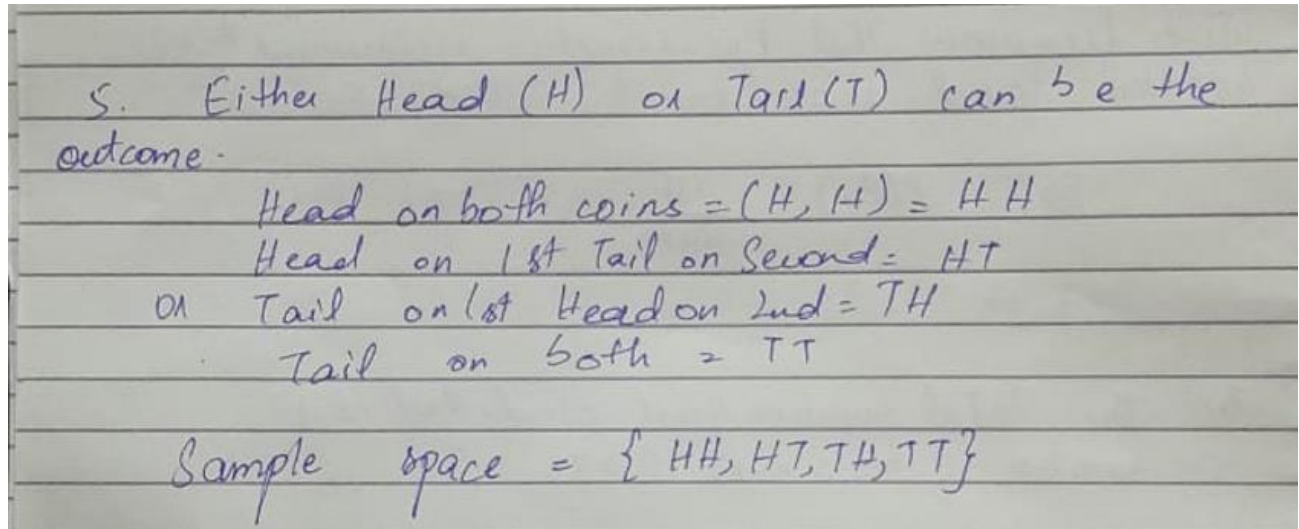 5. Either Head (H) or Tail (T) can be the
outcome.
Head on both coins = (H, H) = HH
Head on 1st Tail on Second = HT
or Tail on 1st Head on 2nd = TH
Tail on both = TT
Sample space = { HH, HT, TH, TT}